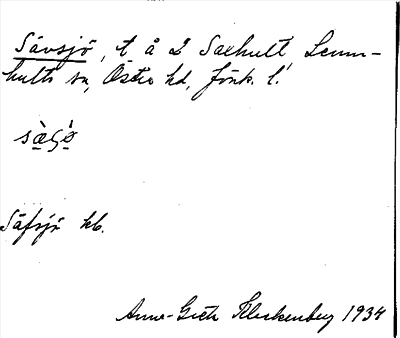 Sävsjö, t å 2 Saxhult Lemn-
hults sn, Östra hd, Jönk. l.
Säfsjö kb.
Anna-Greta Kleckenberg 1934